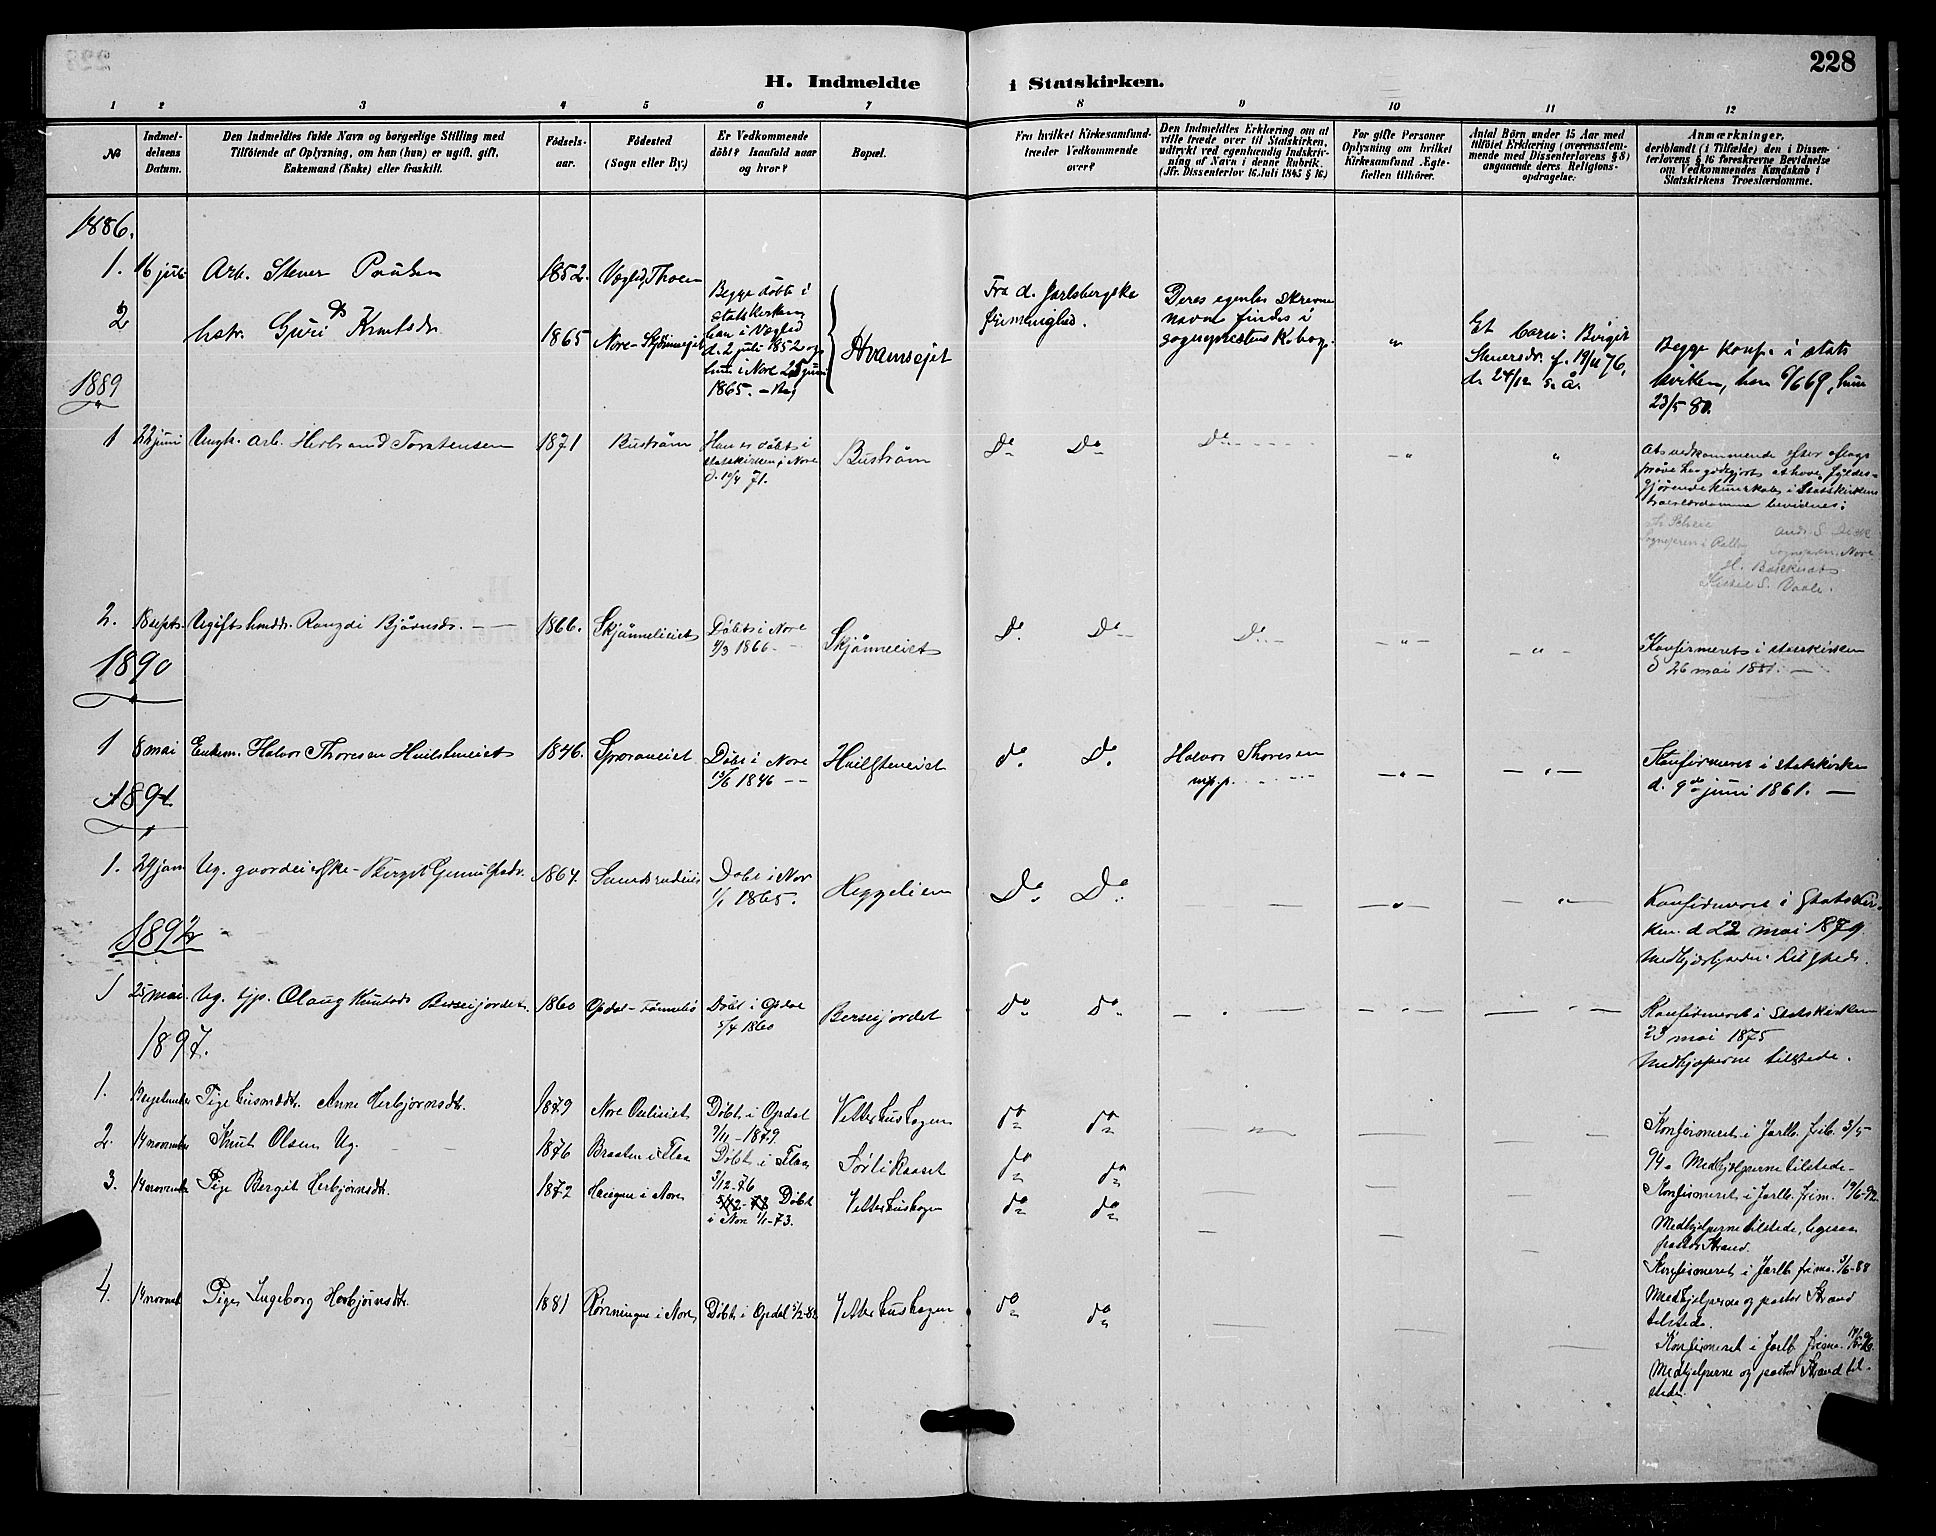 228
H. Indmeldte i Statskirken.
1 2 3 4 5 6 7 8 9 10 11 12
№
Indmel-
delsens
Datum.
Den Indmeldtes fulde Navn og borgerlige Stilling med
Tilföiende af Oplysning, om han (hun) er ugift, gift,
Enkemand (Enke) eller fraskilt.
Födsels-
aar.
Födested
(Sogn eller By.)
Er Vedkommende
döbt? Isaafald naar
og hvor?
Bopæl.
Fra hvilket Kirkesamfund
træder Vedkommende
over?
Den Indmeldtes Erklæring om at
ville træde over til Statskirken,
udtrykt ved egenhændig Indskriv-
ning af Navn i denne Rubrik.
(Jfr. Dissenterlov 16 Juli 1845 § 16.)
For gifte Personer
Oplysning om hvilket
Kirkesamfund Ægte-
fællen tilhörer.
Antal Börn under 15 Aar med
tilföiet Erklæring (overensstem-
mende med Dissenterlovens § 8)
angaaende deres Religions-
opdragelse.
Anmærkninger,
deriblandt (i Tilfælde) den i Dissen-
terlovens § 16 foreskrevne Bevidnelse
om Vedkommendes Kundskab i
Statskirkens Troeslærdomme.
1886.
1. 16 juli Arb. Stener Paulsen 1852. Vegli, Thoen
2 hstr. Guri Knutsdr 1865 Nore-Skjönneiet
Begge döbte i
statskirken
han i Veglid
d. 2 juli 1852 og
hun i Nore 25 juni
1865.
Hvamseiet
Fra d. Jarlsbergske
frimenighed.
Deres egenh. skrevne
navne findes i
sogneprestens K.bog.
"
Et barn: Birgit
Stenersdr. f. 19/11 76,
d. 24/12 s. å.
Begge konf. i stats
kirken, han 6/6 69, hun
23/5 80.
1889
1 22 juni Ungk. arb. Herbrand Torstensen 1871 Buström
Han er döbt i
statskirken i Nore
d. 10/4 71.
Buström Do Do Do " "
At vedkommende efter aflagt
pröve har godtgjort at have fyldest-
gjörende kundskab i Statskirkens
troeslærdomme bevidnes:
H. Bakketun
Kittel S. Vaale.
2. 18 septb. Ugift huusdr. Rangdi Björnsdr. 1866. Skjönneliet
Döbt i Nore
4/3 1866
Skjönneiet Do Do Do " "
Konfirmeret i statskirken
d 26 mai 1881.
1890
1 8 mai Enkem. Halvor Thoresen Huilsteneiet 1846. Sporaneiet
Döbt i Nore
13/5 1846
Huilsteneiet do Do
Halvor Thoresen
m.p.p.
" "
Konfirmeret i statskirke
d. 9de juni 1861.
1891
1. 29 jan Ug. gaardeierske Berget Gunulfsdr. 1864. Sandsrudeie
Döbt i Nor
1/1 1865.
Heggelien Do Do " "
Konfirmeret i Statskir-
ken d 22 mai 1879.
Medhjælperne tilstede.
1892
1 25 mai Ug. tjp. Olaug Knutsdr Berseijordet. 1860 Opdal-Tönneliö
Döbt i Opdal
5/4 1860
Berseijordet do do
Konfirmeret i Statskirken
23 mai 1875
Medhjælperne tilstede.
1897.
1. Pige husmdtr. Anne Herbjörnsdtr. 1879 Nore
Döbt i Opdal
9/11-1879
Vetterhushagen do do
Konfirmeret i Jarlb. frib. 3/5-
94. Medhjelperne tilstede.
2. 14 november Knut Olsen Ug. 1876 Braaten i Flaa
Döbt i Flaa
3/12-76
do do
Konfirmeret i Jarlb. frim. 19/6-92.
Medhjelperne tilstede, ligesaa
pastor Strand.
3. 14 november Pige Bergit Herbjörnsdtr. 1872 i Nore
Döbt
i Nore 1/1-73.
Vetterhushagen do do
Konfirmeret i Jarlb. frime. 3/6-88
Medhjelperne og pastor Strand
tilstede.
4. 14 novemb Pige Ingeborg Herbjörnsdtr. 1881 Rönningen i Nore Döbt i Opdal 5/2-82 Vetterhushagen do do
Konfirmeret i Jarlb. frime.
Medhjelperne og pastor Strand til-
stede.